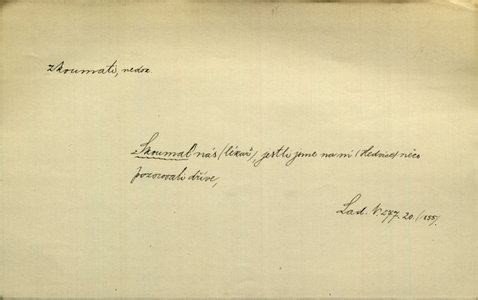 zkoumati, nedok.
Skoumal nás (lékař), jestli jsme na ní (Hedvice) něco
pozorovali dříve,
Lad. V. 277. 20. (1855).